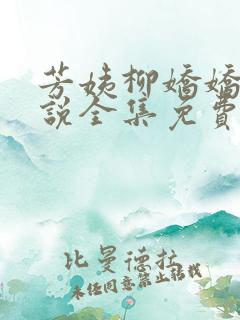 芳姨柳嬌嬌
說全集免費
比曼德拉
未经同意禁止转载